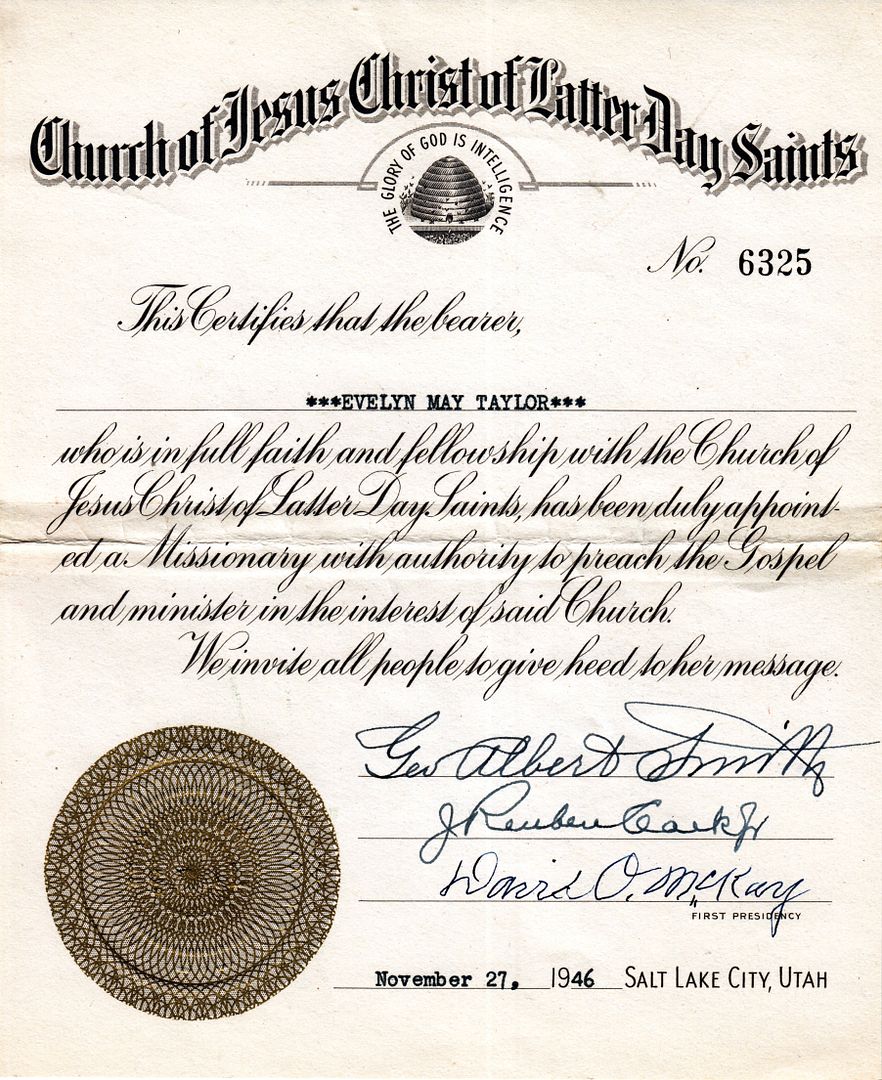 Church of Jesus Christ of Latter Day Saints
THE GLORY OF GOD IS INTELLIGENCE
No. 6325
This Certifies that the bearer,
***EVELYN MAY TAYLOR***
who is in full faith and fellowship with the Church of
Jesus Christ of Latter Day Saints, has been duly appoint-
ed a Missionary with authority to preach the Gospel
and minister in the interest of said Church.
We invite all people to give heed to her message.
Geo Albert Smith
J Reuben Clark Jr
David O. McKay
FIRST PRESIDENCY
November 27, 1946 SALT LAKE CITY, UTAH